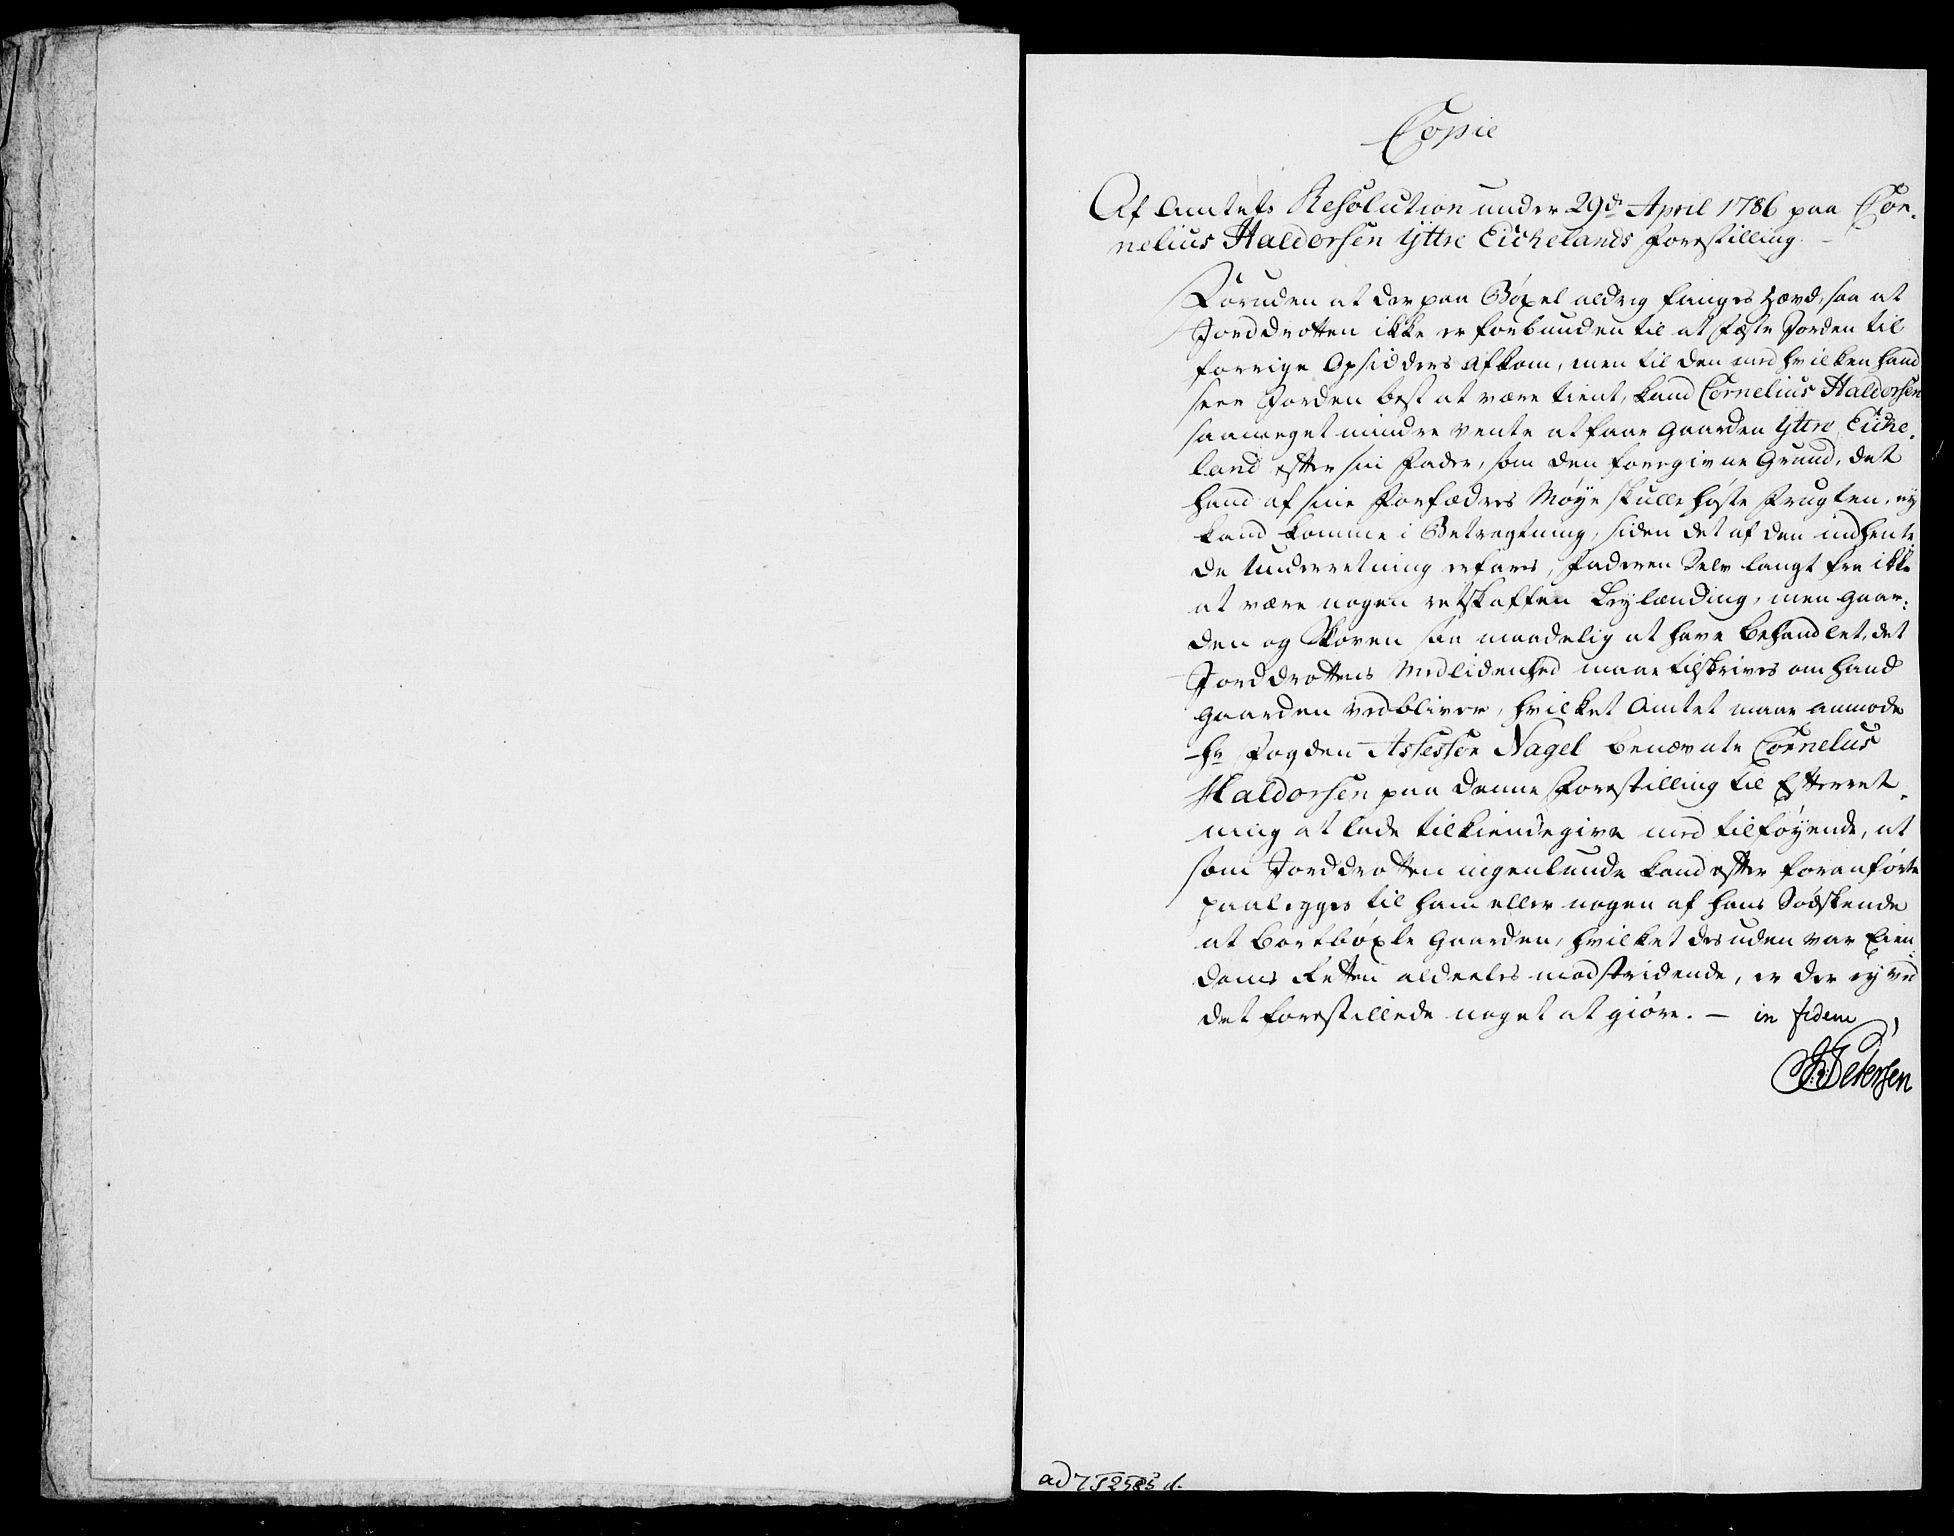 Copie
Af Amtets Resolution under 29de April 1786 paa Cor-
nelius Haldorsen Yttre Eichelands Forestilling. –
Foruden at der paa Böxel aldrig fanges Hævd, saa at
Jorddrotten ikke er forbunden til at fæste Jorden til
forrige Opsidders Afkom, men til den med hvilken hand
seer Jorden best at være tient, kand Cornelius Haldorsen
saameget mindre vente at faae Gaarden Yttre Eiche-
land efter sin Fader, som den foregivne Grund, det
hand af sine Forfædres Møye skulle høste Frugten, ey
kand komme i Betragtning, siden det af den indhente
de Underretning erfares, Faderen Selv langt fra ikke
at være nogen retskaffen Leylænding, men Gaar:
den og Skoven saa maadelig at have behandlet, det
Jorddrottens Medlidenhed maae tilskrives om hand
Gaarden vedbliver, hvilket Amtet maae anmode
Hr Fogden Assessor Nagel benævnte Cornelus
Haldorsen paa denne Forestilling til Efterret-
ning at lade tilkiendegive med tilføyende, at
som Jorddrotten ingenlunde kand efter foranførte
paalegges til ham eller nogen af hans Södskende
at bortböxle Gaarden, hvilket desuden var Eien-
doms Retten aldeeles modstridende, er der ey ved
det forestillede noget at giöre. – in fidem
Petersen